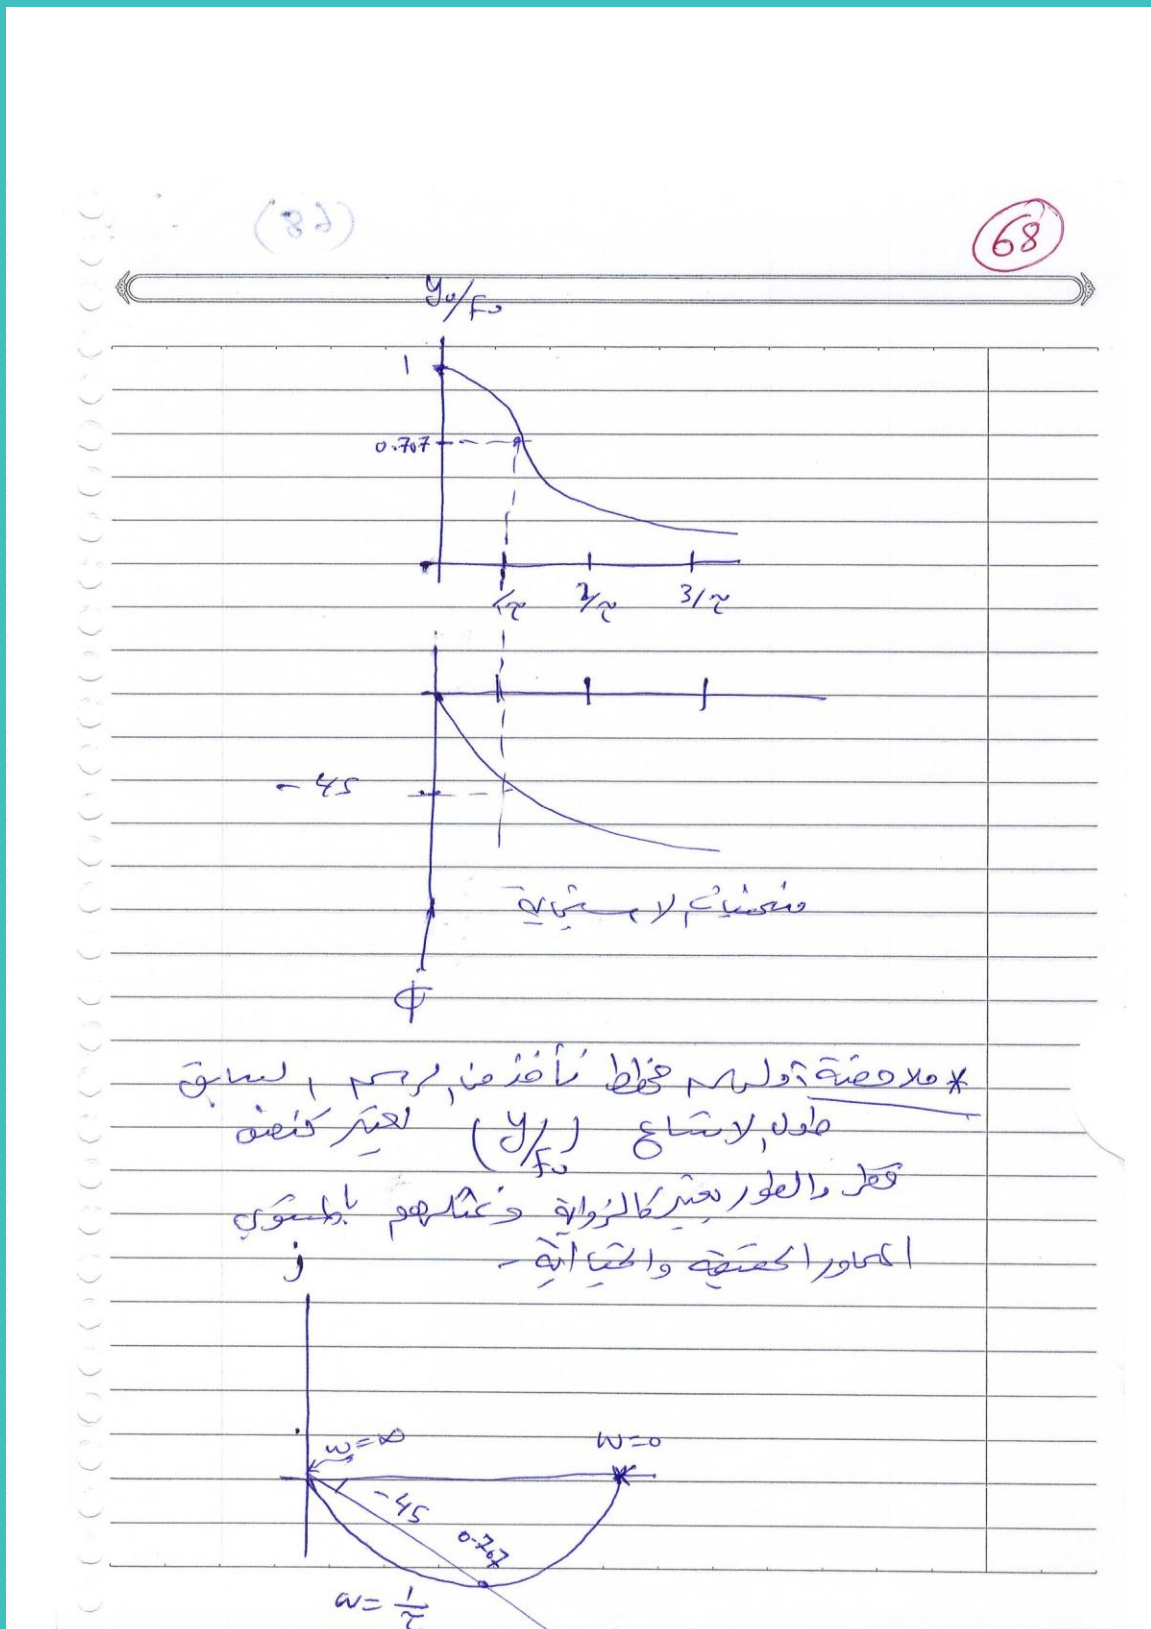 68
y₀/F₀
1
0.707
1/τ 2/τ 3/τ
- 45
منحنيات الاستجابة
Φ
* ملاحظة: لرسم مخطط نأخذ من الرسم السابق
طول الاتساع (y/F₀) تعتبر كنصف
قطر والطور يعتبر كالزواية و نمثلهم بالمستوي
المحاور الحقيقية والخيالية -
j
w=∞ w=0
-45
0.707
w = 1/τ